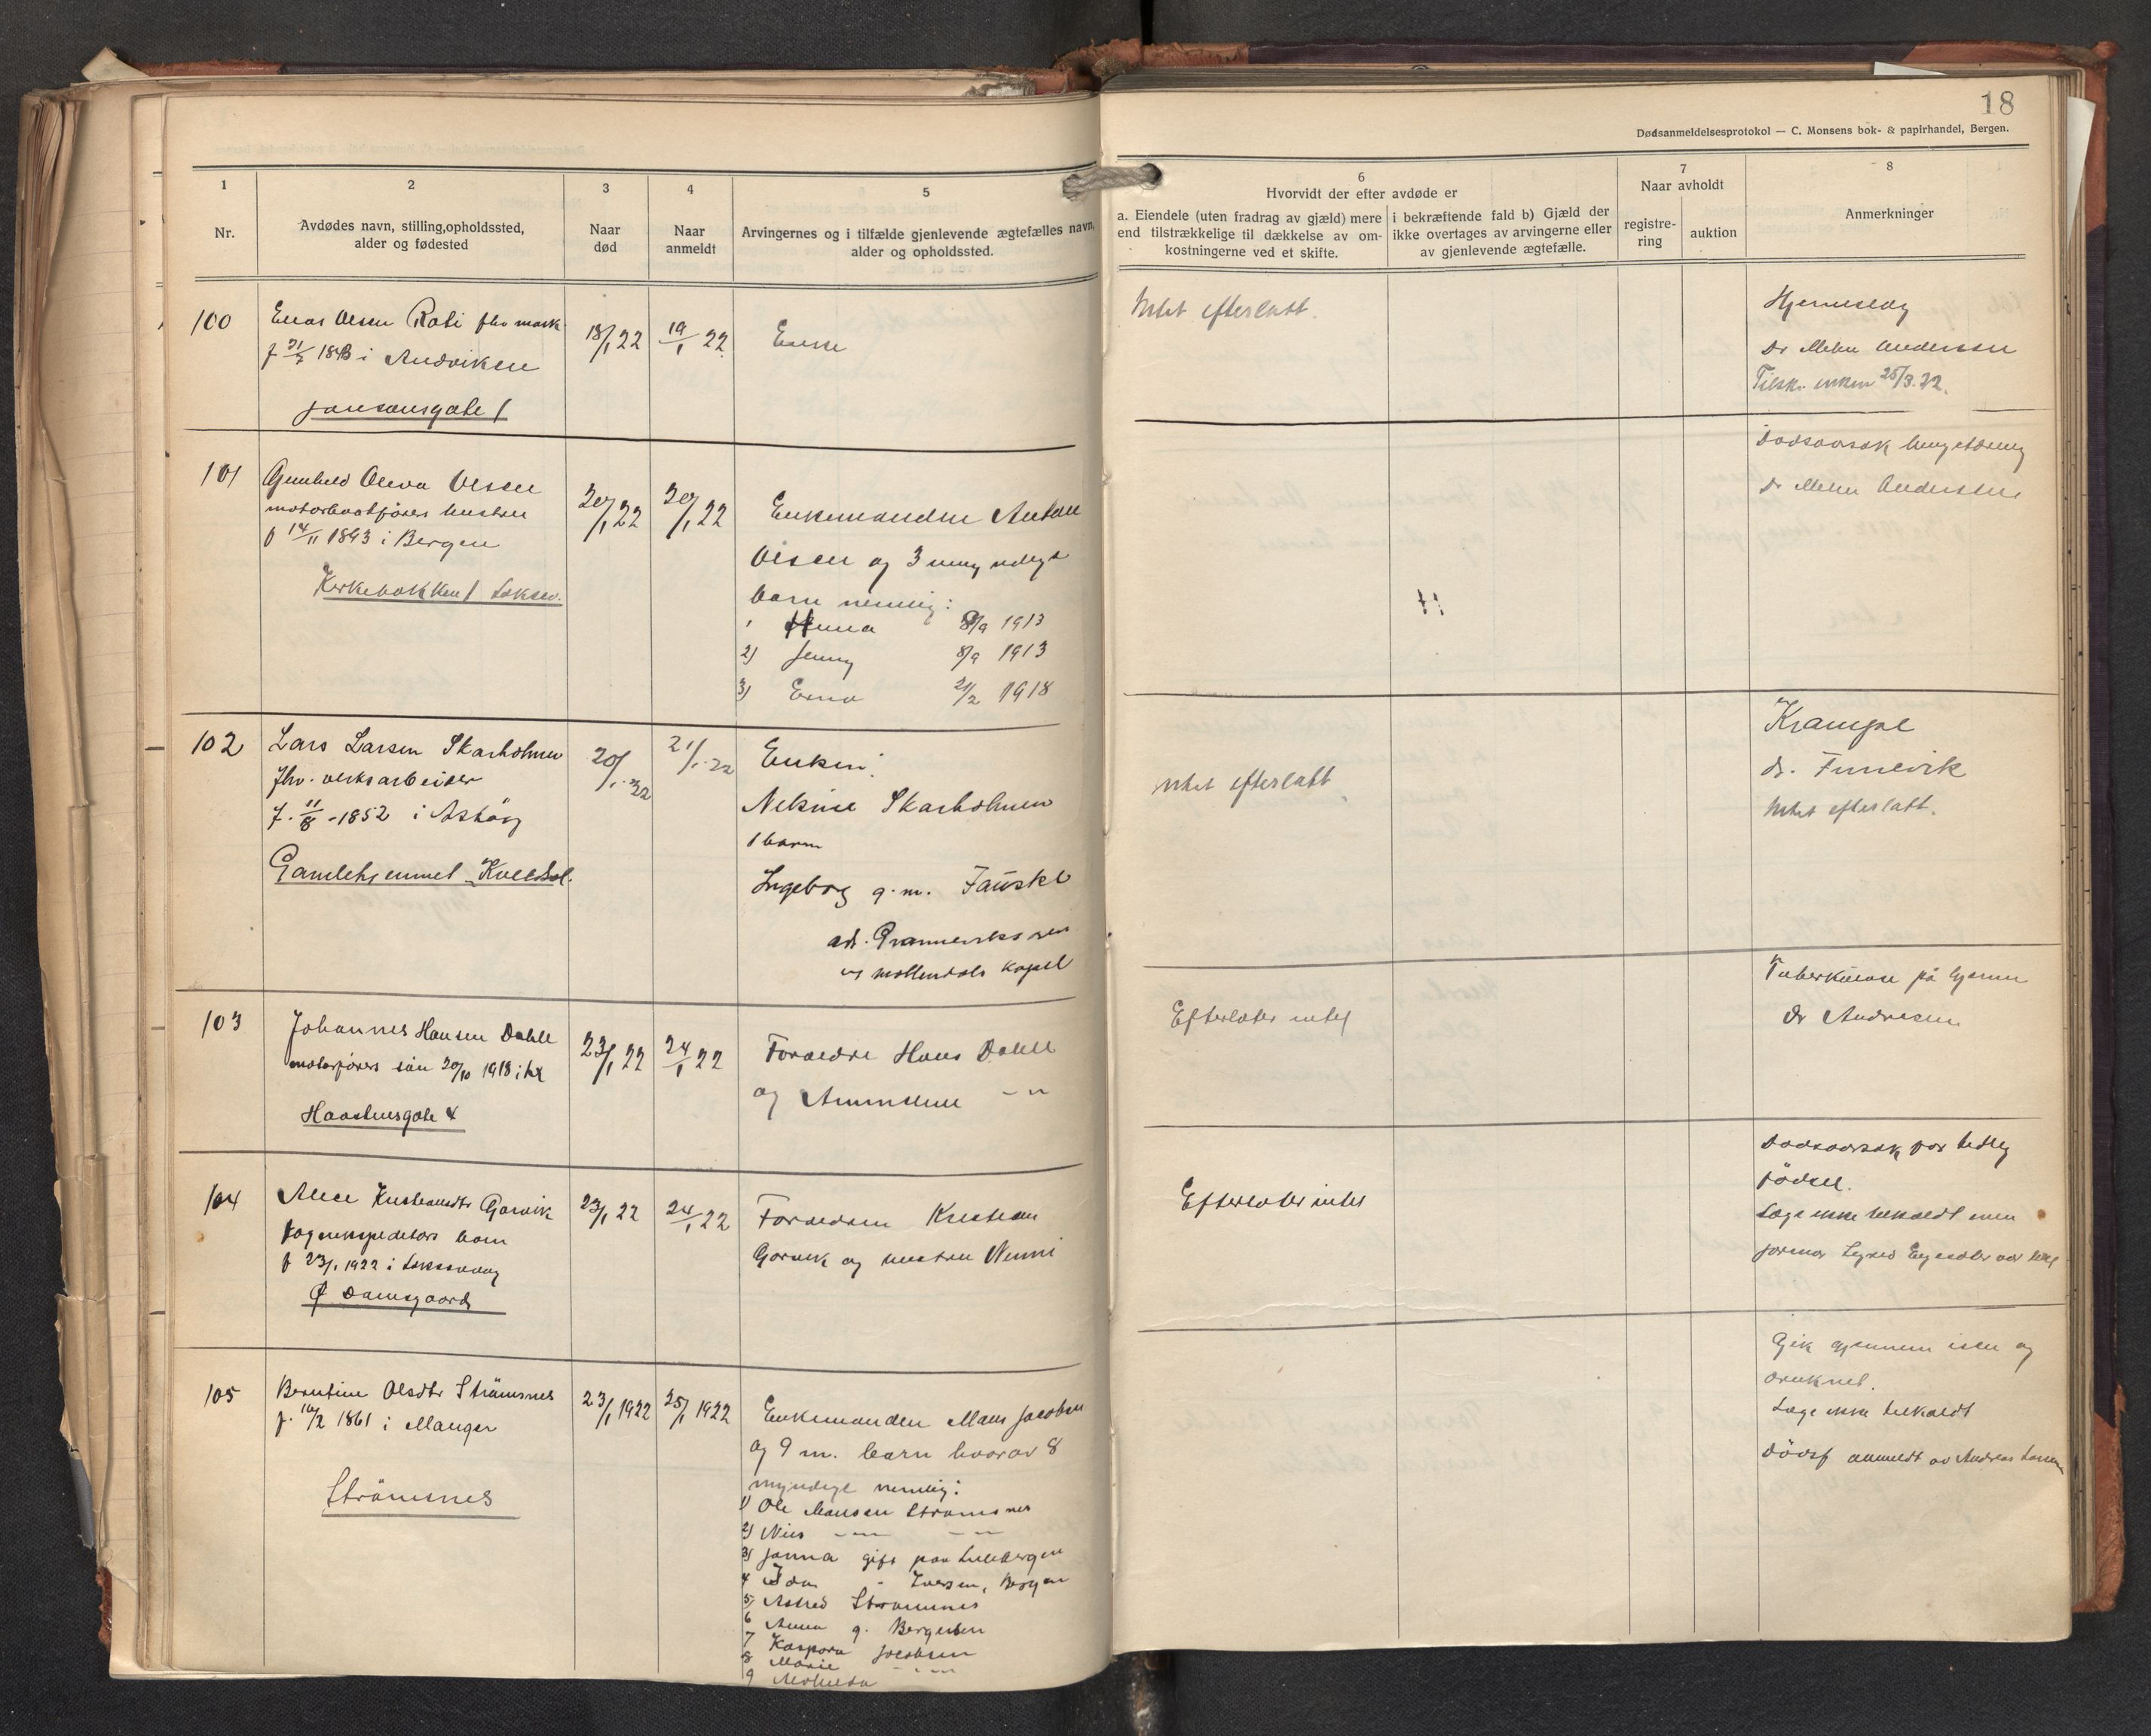 18
Dødsanmeldelsesprotokol — C. Monsens bok- & papirhandel, Bergen.
1
Nr.
2
Avdødes navn, stilling, opholdssted,
alder og fødested
3
Naar
død
4
Naar
anmeldt
5
Arvingernes og i tilfælde gjenlevende ægtefælles navn,
alder og opholdssted.
6
Hvorvidt der efter avdøde er
a. Eiendele (uten fradrag av gjæld) mere
end tilstrækkelige til dækkelse av om-
kostningerne ved et skifte.
i bekræftende fald b) Gjæld der
ikke overtages av arvingerne eller
av gjenlevende ægtefælle.
7
Naar avholdt
registre-
ring
auktion
8
Anmerkninger
100
Olsen Rabi fhv
1843 i Andviken
Jansonsgate 1
18/1 22
19/1 22
Enke
Intet efterlatt.
Hjerneslag
Dr Andersen
Tilskr. enken 25/3.22.
101
Gunhild Oliva Olsen
motorbaatförers hustru
f 14/11 1893 i Bergen
Kirkebakken 1 Laksev.
20/1 22
20/1 22
Enkemanden Anton
Olsen og 3 umyndige
barn nemlig:
1 Anna 8/9 1913
2) Jenny 8/9 1913
3) Erna 21/2 1918
Dödsaarsak
Dr Andersen
102
Lars Larsen Skarholmen
fhv. verksarbeider
f. 11/8 - 1852 i Askøy
Gamlehjemmet
20/1.22
21/1.22
Enken:
Nekine Skarholmen
1 barn
Ingeborg g.m. Fauske
adr.
v/ Møllendals kapel
intet efterlatt
Krampe
dr.
Intet efterlatt.
103
Johannes Hansen Dahle
motorførers sön 20/10 1918 i
Haastensgate 4
23/1 22
24/1 22
Foreldre Hans Dahle
og
Efterlater intet
Tuberkulose på hjernen
Dr Andresen
104
Alice Kristiansdtr Garvik
vognexpeditørs barn
f 23/1 1922 i Laksevaag
Damsgaard
23/1 22
24/1 22
Foreldrene Kristian
Garvik og hustru Nenni
Efterlater intet
Dødsaarsak var tidlig
födsel.
Læge ikke tilkaldt men
jormor
105
Berntine Olsdtr Strömsnes
f. 16/2 1861 i Manger
Strömsnes
23/1 1922
25/1 1922
Enkemanden Mons Jacobsen
og 9 m. barn hvorav 8
myndige nemlig:
1) Ole Monsen Strømsnes
2) Nils — " —
3) Janna gift paa Lillebergen
4 Ida - Iversen, Bergen
5) Astrid Strømsnes
6 Anna g. Bergesen
7 Kaspara Jacobsen
8 Marie — " —
9
Gik gjennem isen og
druknet.
Læge ikke tilkaldt
Dödsf anmeldt av Andreas Larsen